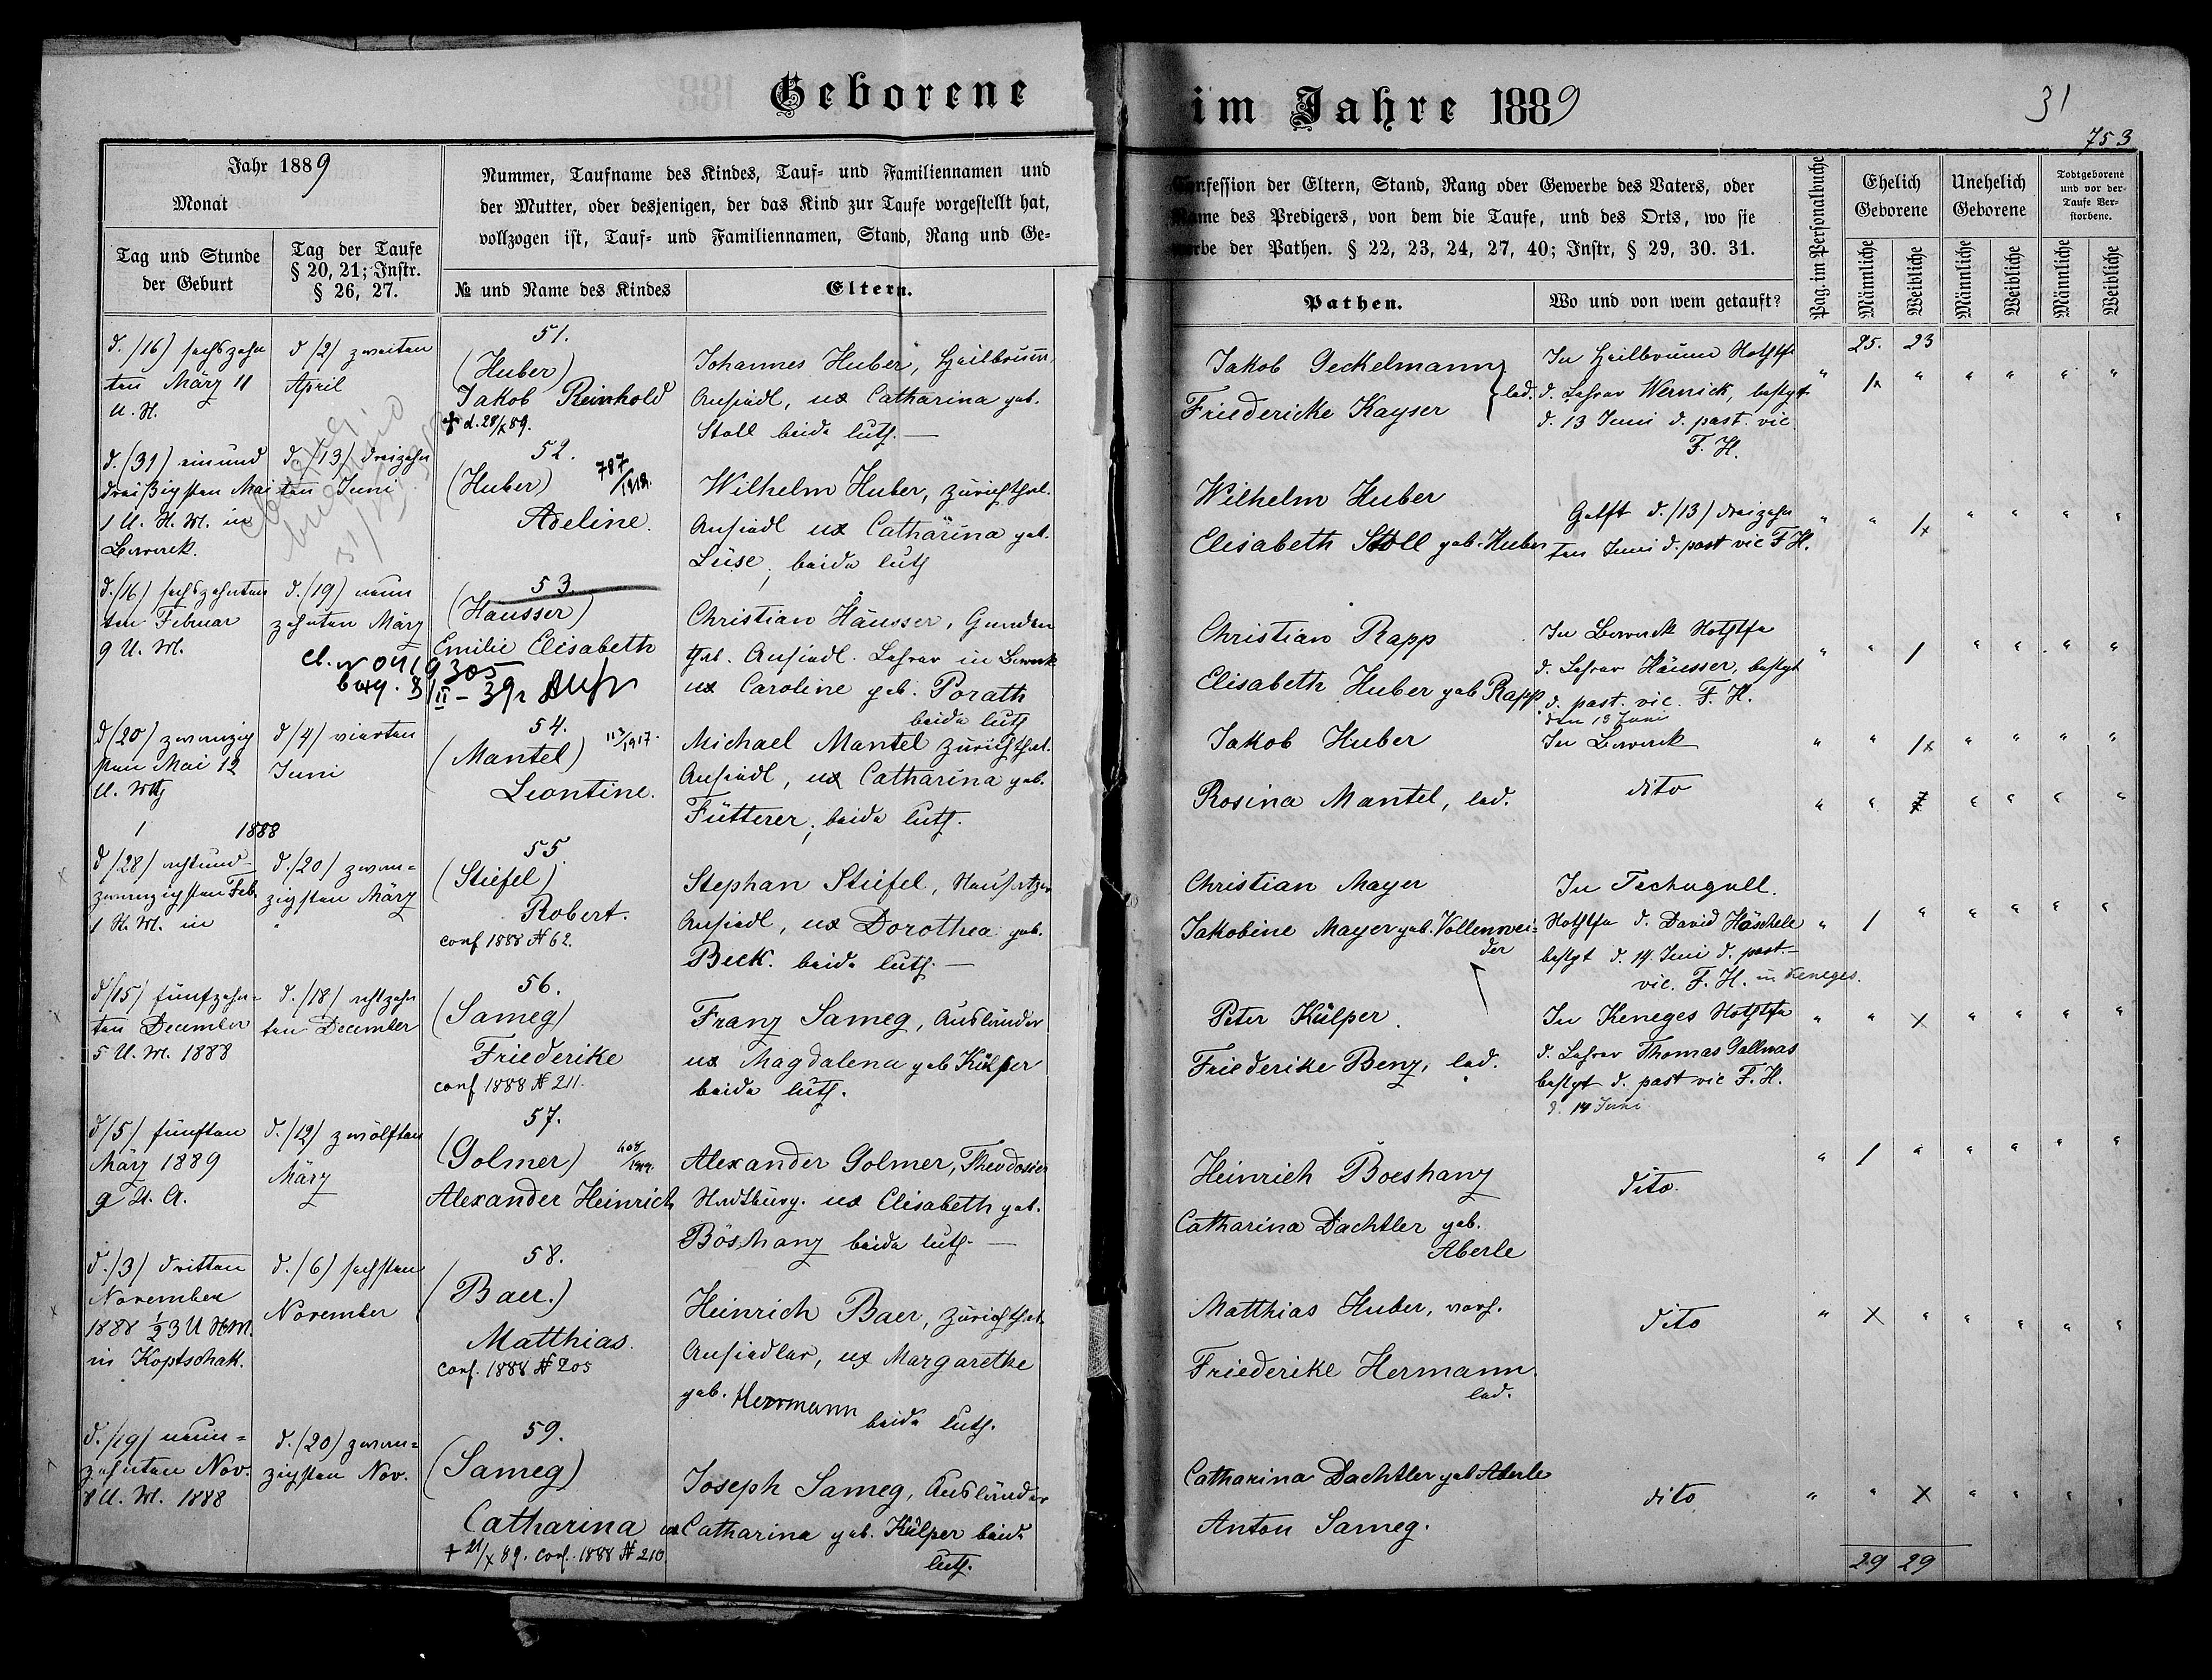 Geborene
im Jahre 1889
31
753
Jahr 1889
Monat
Tag und Stunde
der Geburt
Tag der Taufe
§ 20, 21; Instr.
§ 26, 27.
Nummer, Taufname des Kindes, Tauf- und Familiennamen und
der Mutter, oder desjenigen, der das Kind zur Taufe vorgestellt hat,
vollzogen ist, Tauf- und Familiennamen, Stand, Rang und Ge-
№ und Name des Kindes
Eltern.
Confession der Eltern, Stand, Rang oder Gewerbe des Vaters, oder
Name des Predigers, von dem die Taufe, und des Orts, wo sie
werbe der Pathen. § 22, 23, 24, 27, 40; Instr, § 29, 30. 31.
Pathen.
Wo und von wem getauft?
Pag. im Personalbuche
Ehelich
Geborene
Unehelich
Geborene
Todtgeborene
und vor der
Taufe Ver-
storbene.
Männliche
Weibliche
Männliche
Weibliche
Männliche
Weibliche
25. 23
d. /16/ sechszehn
ten März 11
U. N.
d /2/ zweiten
April
51.
(Huber)
Jakob Reinhold
+ d. 28/X 89.
Johannes Huber, Heilbrunn,
Ansiedl, ux Catharina geb.
Stoll beide luth. —
Jakob Geckelmann
Friedericke Kayser
led.
In Heilbrunn Nothtfe
d. Lehrer Wernick, bestgt
d. 13 Juni d. past. vic.
F. H.
d. (31) einund
dreißigsten Mai
1 U. N. M. in
Berwerk.
d. /13/ dreizehn
ten Juni
52.
(Huber)
787/1918.
Adeline.
Wilhelm Huber, Zürichthal.
Ansiedl ux Catharina geb.
Lüse, beide luth
Wilhelm Huber
Elisabeth Stoll geb. Huber
Getft d. /13/ dreizehn
ten Juni d. past vic F. H.
d. /16/ sechszehnten
ten Februar
9 U. M.
d. /19/ neun
zehnten März
53.
(Häusser)
Emilie Elisabeth
Christian Häusser, Gnaden
thal. Ansiedl. Lehrer in Berwerk
ux Caroline geb. Porath
beide luth
Christian Rapp
Elisabeth Huber geb Rapp
In Berwerk Nothtfe
d. Lehrer Häusser, bestgt
d. past. vic. F. H.
den 13 Juni
d (20) zwanzig
sten Mai 12
U. Mttg
d /4/ vierten
Juni
54.
(Mantel)
113/1917.
Leontine.
Michael Mantel Zürichthal.
Ansiedl, ux Catharina geb.
Fütterer, beide luth.
Jakob Huber
Rosina Mantel, led.
In Berwerk
dito
1888
d /28/ achtund-
zwanzigsten Feb.
1 N. M. in
d. /20/ zwan-
zigsten März
55.
(Stiefel)
Robert.
conf 1888 № 62.
Stephan Stiefel, Neusatzer
Ansiedl, ux Dorothea geb.
Beck. beide luth. —
Christian Mayer
Jakobine Mayer geb. Vollenwei-
der
In Techugull.
Nothtfe d. David Häschele
bestgt d. 14 Juni d. past.
vic. F. H. in Keneges.
d /15/ fünfzehn-
ten December
5 U. M. 1888
d. /18/ achtzehn
ten December
56.
(Sameg)
Friederike
conf 1888 № 211.
Franz Sameg, Ausländer
ux Magdalena geb Külper
beide luth.
Peter Külper.
Friederike Benz, led.
In Keneges Nothtfe
d. Lehrer Thomas Gallwas
bestgt d. past vic F. H.
d. 14 Juni
d /5/ fünften
März 1889
9 U. A.
d. /12/ zwölften
März
57.
(Golmer)
Alexander Heinrich
Alexander Golmer, Theodosier
Stadtbürg. ux Elisabeth geb.
Böshanz beide luth. —
Heinrich Boeshanz
Catharina Dachtler geb.
Aberle
dito.
d. /3/ dritten
November
1888 ½3 U N.M.
in Koptschak.
d. /6/ sechsten
November
58.
(Baer.)
Matthias.
conf. 1888 № 205
Heinrich Baer, Zürichthal.
Ansiedler, ux Margarethe
geb. Herrmann
beide luth.
Matthias Huber, verh.
Friederike Hermann.
led.
dito
d. /19/ neun-
zehnten Nov.
8 U. M. 1888
d. /20/ zwan-
zigsten Nov.
59.
(Sameg)
Catharina
+ 21/X 89. conf. 1888 № 210.
Joseph Sameg, Ausländer
ux Catharina geb. Külper beide
luth.
Catharina Dachtler geb Aberle
Anton Sameg.
dito
29 29